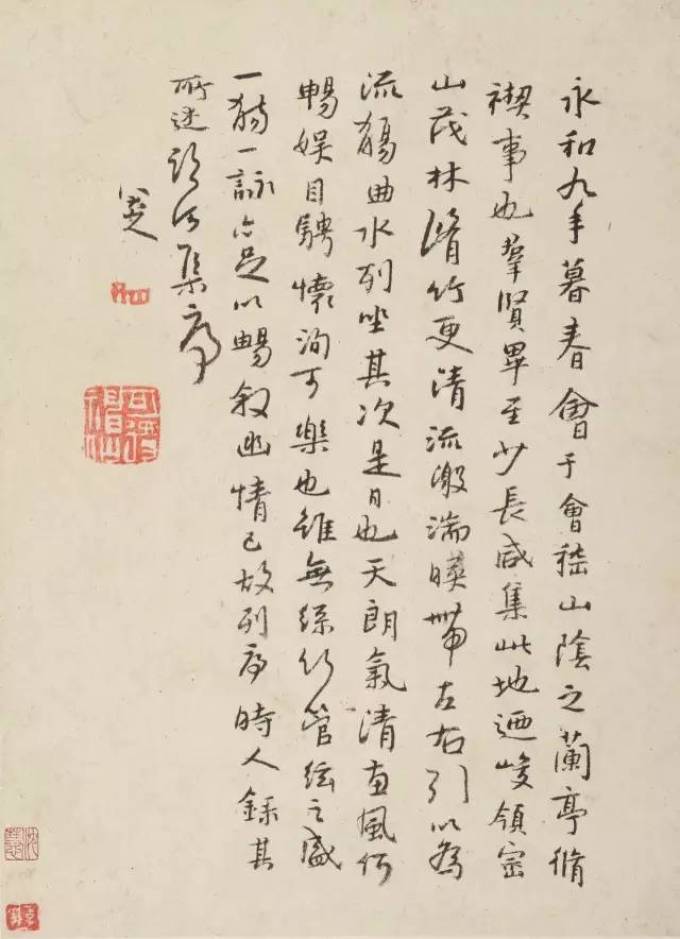 永和九年暮春會于會嵇山陰之蘭亭脩
禊事也羣賢畢至少長咸集此地迺峻領崇
山茂林脩竹更清流激湍暎帶左右引以為
流觴曲水列坐其次是日也天朗氣清惠風和
暢娛目騁懷洵可樂也雖無絲竹管絃之盛
一觴一詠亦足以暢敘幽情已故列序時人錄其
所述臨河集序
八大
可得神仙